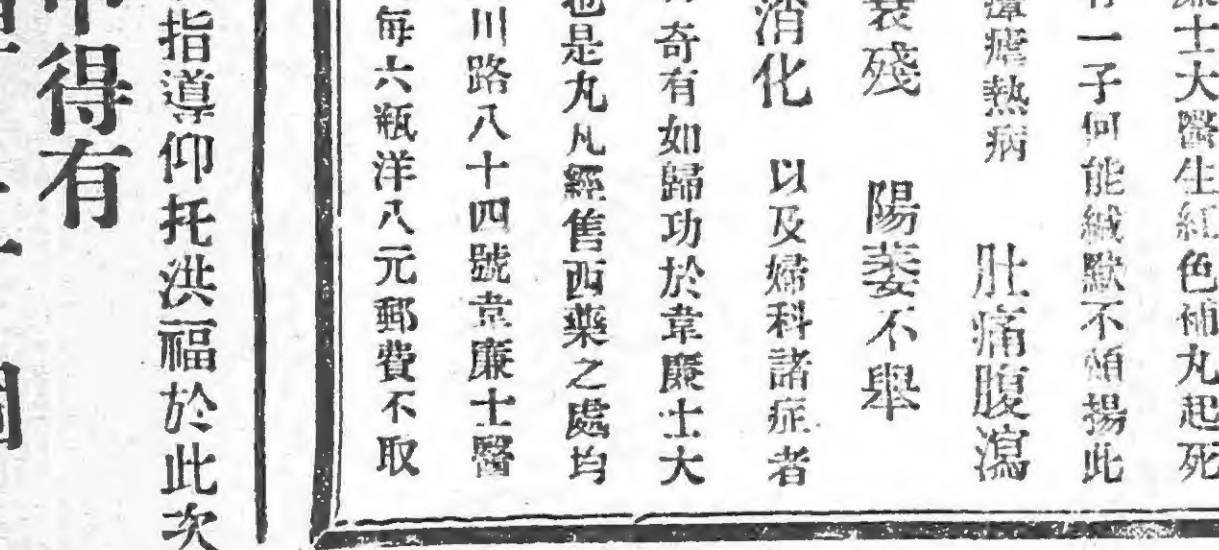 士大醫生紅色補丸起死
一子何能緘默不頌揚此
瘴瘧熱病 肚痛腹瀉
衰殘 陽萎不舉
消化 以及婦科諸症者
奇有如歸功於韋廉士大
也是丸凡經售西藥之處均
川路八十四號韋廉士醫
每六瓶洋八元郵費不取
指導仰托洪福於此次
得有